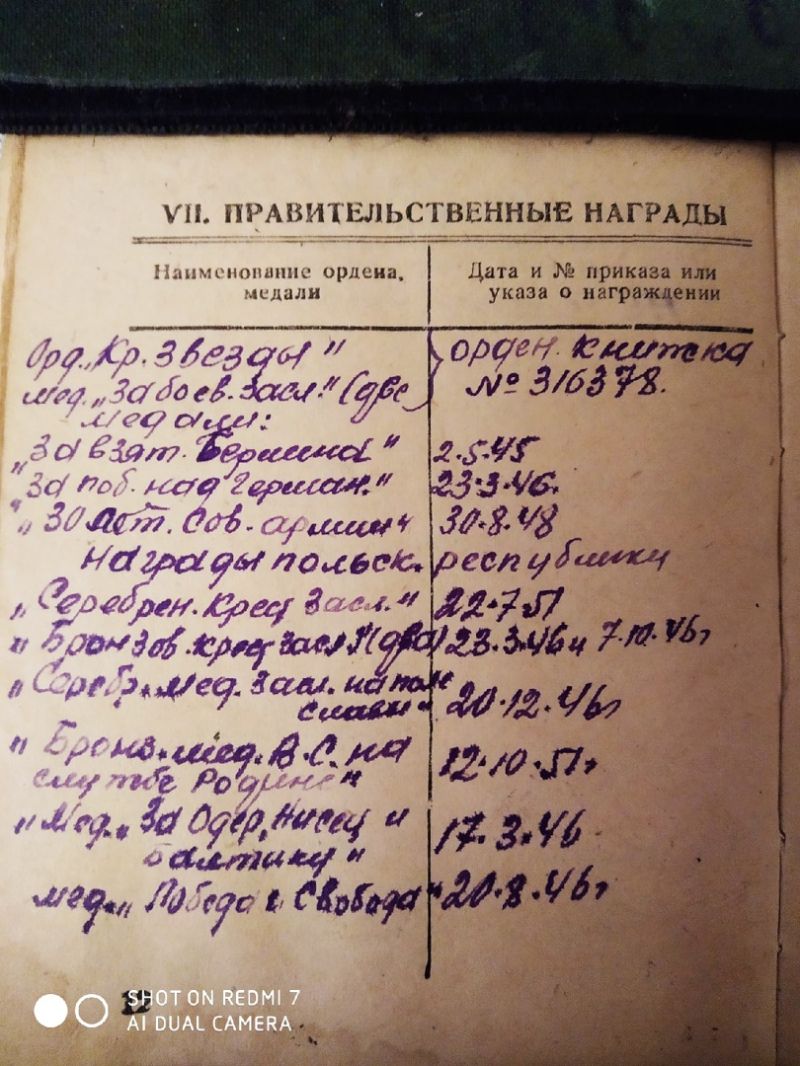 VII. ПРАВИТЕЛЬСТВЕННЫЕ НАГРАДЫ
Наименование ордена, медали
Дата и № приказа или указа о награждении
Орд. „Кр. Звезды" } орден. книжка
мед. „За боев. засл." (две № 316378.
медали:
„За взят. Берлина" 2.5.45
„За поб. над Герман." 23.3.46.
„30 лет. Сов. армии" 30.8.48
награды польск. республики
„Серебрен. крест засл." 22.7.51
„Бронзов. крест засл." (два) 23.3.46 и 7.10.46г
„Серебр. мед. засл. на поле
славы" 20.12.46г
„Бронз. мед. В.С. на
службе Родине" 12.10.51г
„Мед. „За Одер, Нисец и
балтику" 17.3.46
мед. „Победа и Свобода" 20.8.46г
12
SHOT ON REDMI 7
AI DUAL CAMERA